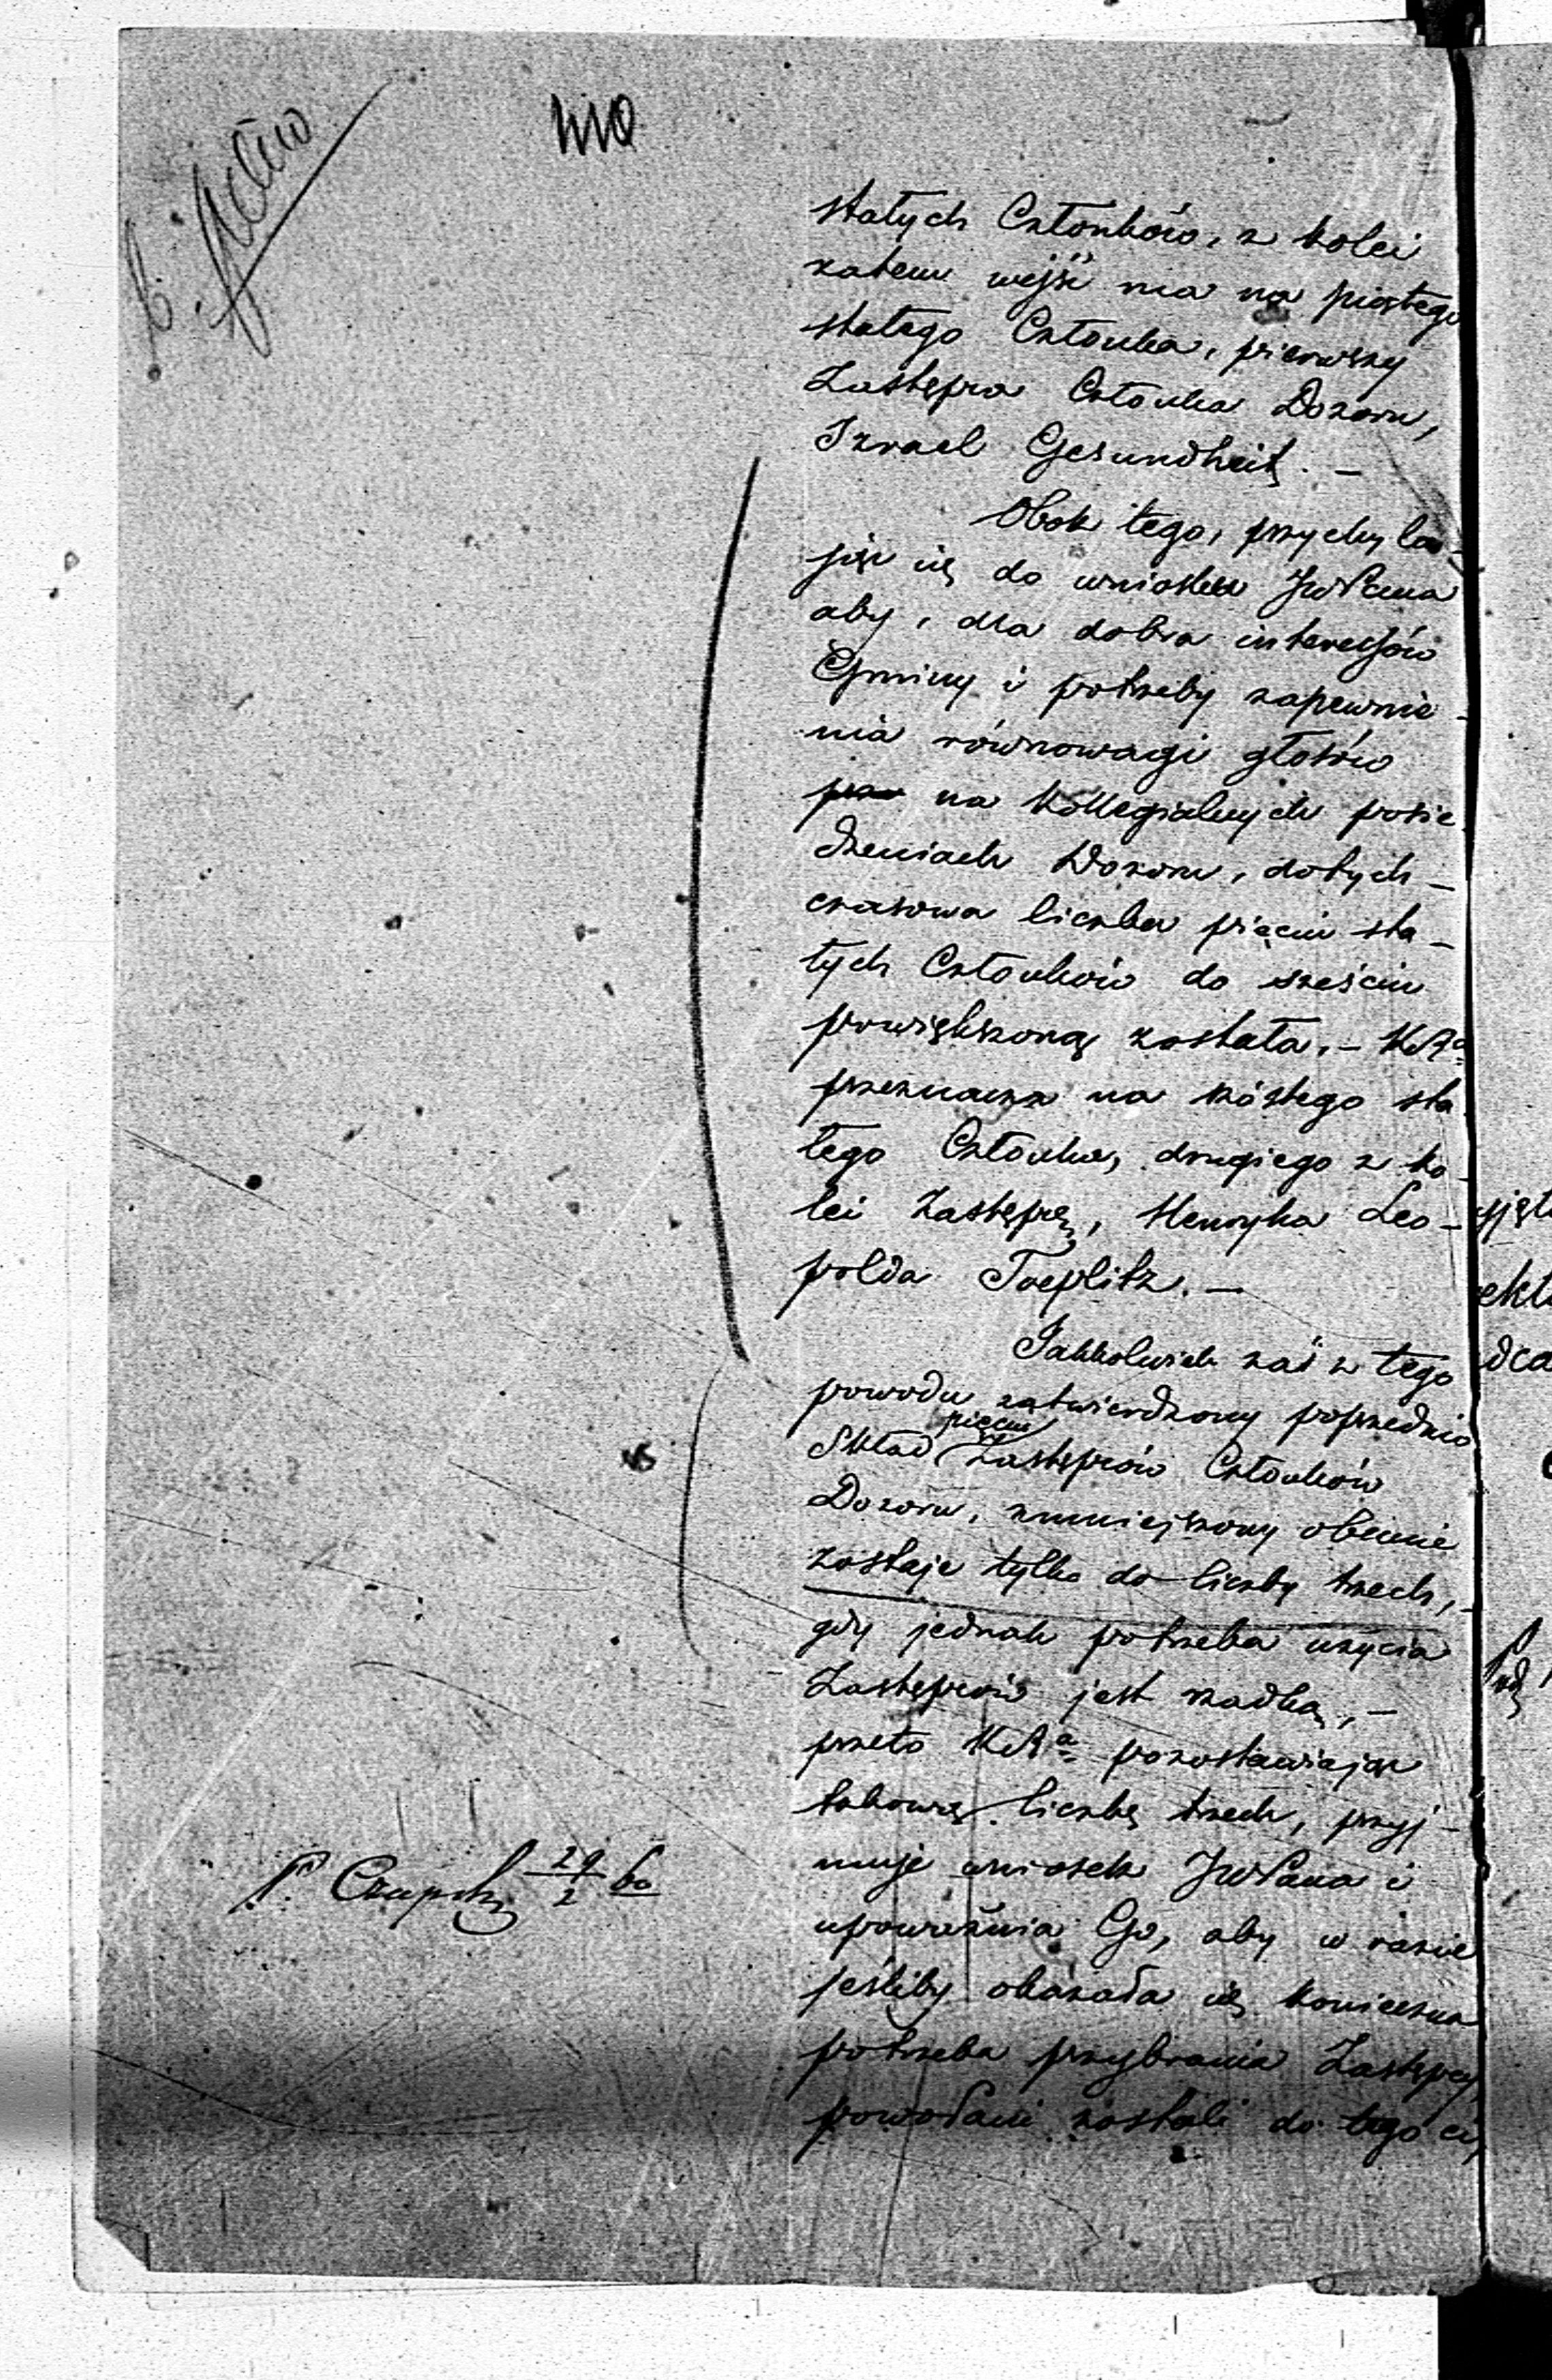 stałych Członków, z kolei
zatem wejść ma na piątego
stałego Członka, pierwszy
Zastępca Członka Dozoru,
Izrael Gesundheit. –
Obok tego, przychyla-
jąc się do wniosku JWPana
aby, dla dobra interessów
Gminy i potrzeby zapewnie-
nia równowagi głosów
na kollegialnych posie-
dzeniach Dozoru, dotych-
czasowa liczba pięciu sta-
łych Członków do sześciu
powiększoną została, – KRa
przeznacza na szóstego sta-
łego Członka, drugiego z ko-
lei Zastępcę, Henryka Leo-
polda Toeplitz. –
Jakkolwiek zaś z tego
powodu zatwierdzony poprzednio
Skład pięciu Zastępców Członków
Dozoru, zmniejszony obecnie
zostaje tylko do liczby trzech, –
gdy jednak potrzeba użycia
Zastępców jest rzadką, –
przeto KRa pozostawiając
takową liczbę trzech, przyj-
muje wniosek JWPana i
upoważnia Go, aby w razie
jeśliby okazała się konieczna
potrzeba przybrania Zastępcy,
powołani zostali do tego ci,
29/2 60